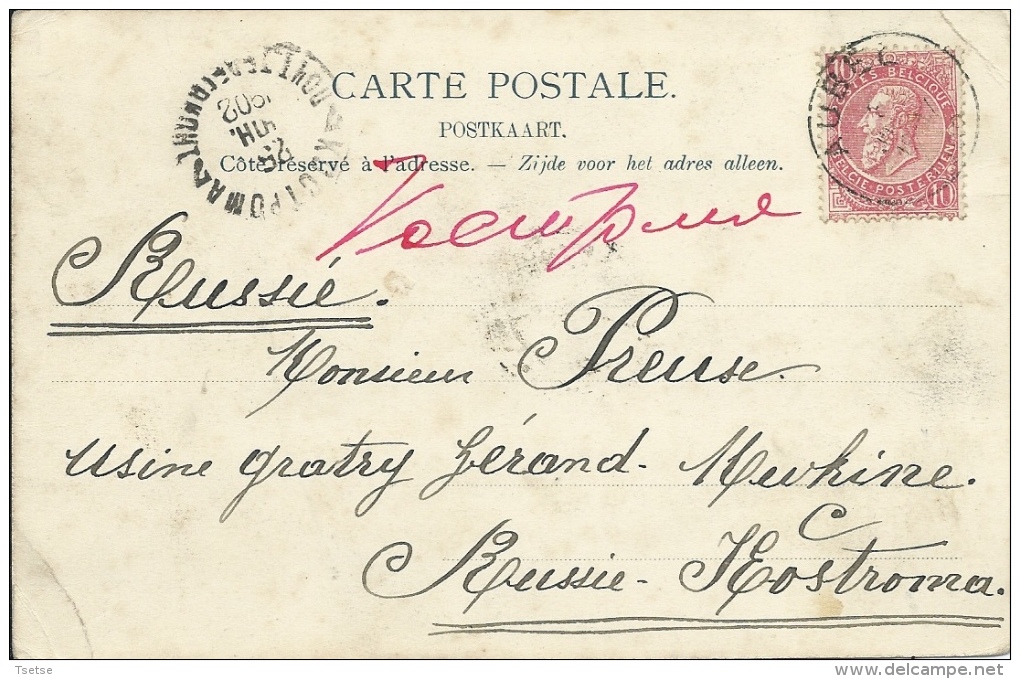 CARTE POSTALE.
POSTKAART.
Côté réservé à l'adresse. — Zijde voor het adres alleen.
POSTES BELGIQUE
BELGIE-POSTERIJEN
10 10
1902
Кострома
Russie.
Monsieur Preuse.
usine gratry Gérand. Mevhine.
Russie - Kostroma.
Tsetse
www.delcampe.net